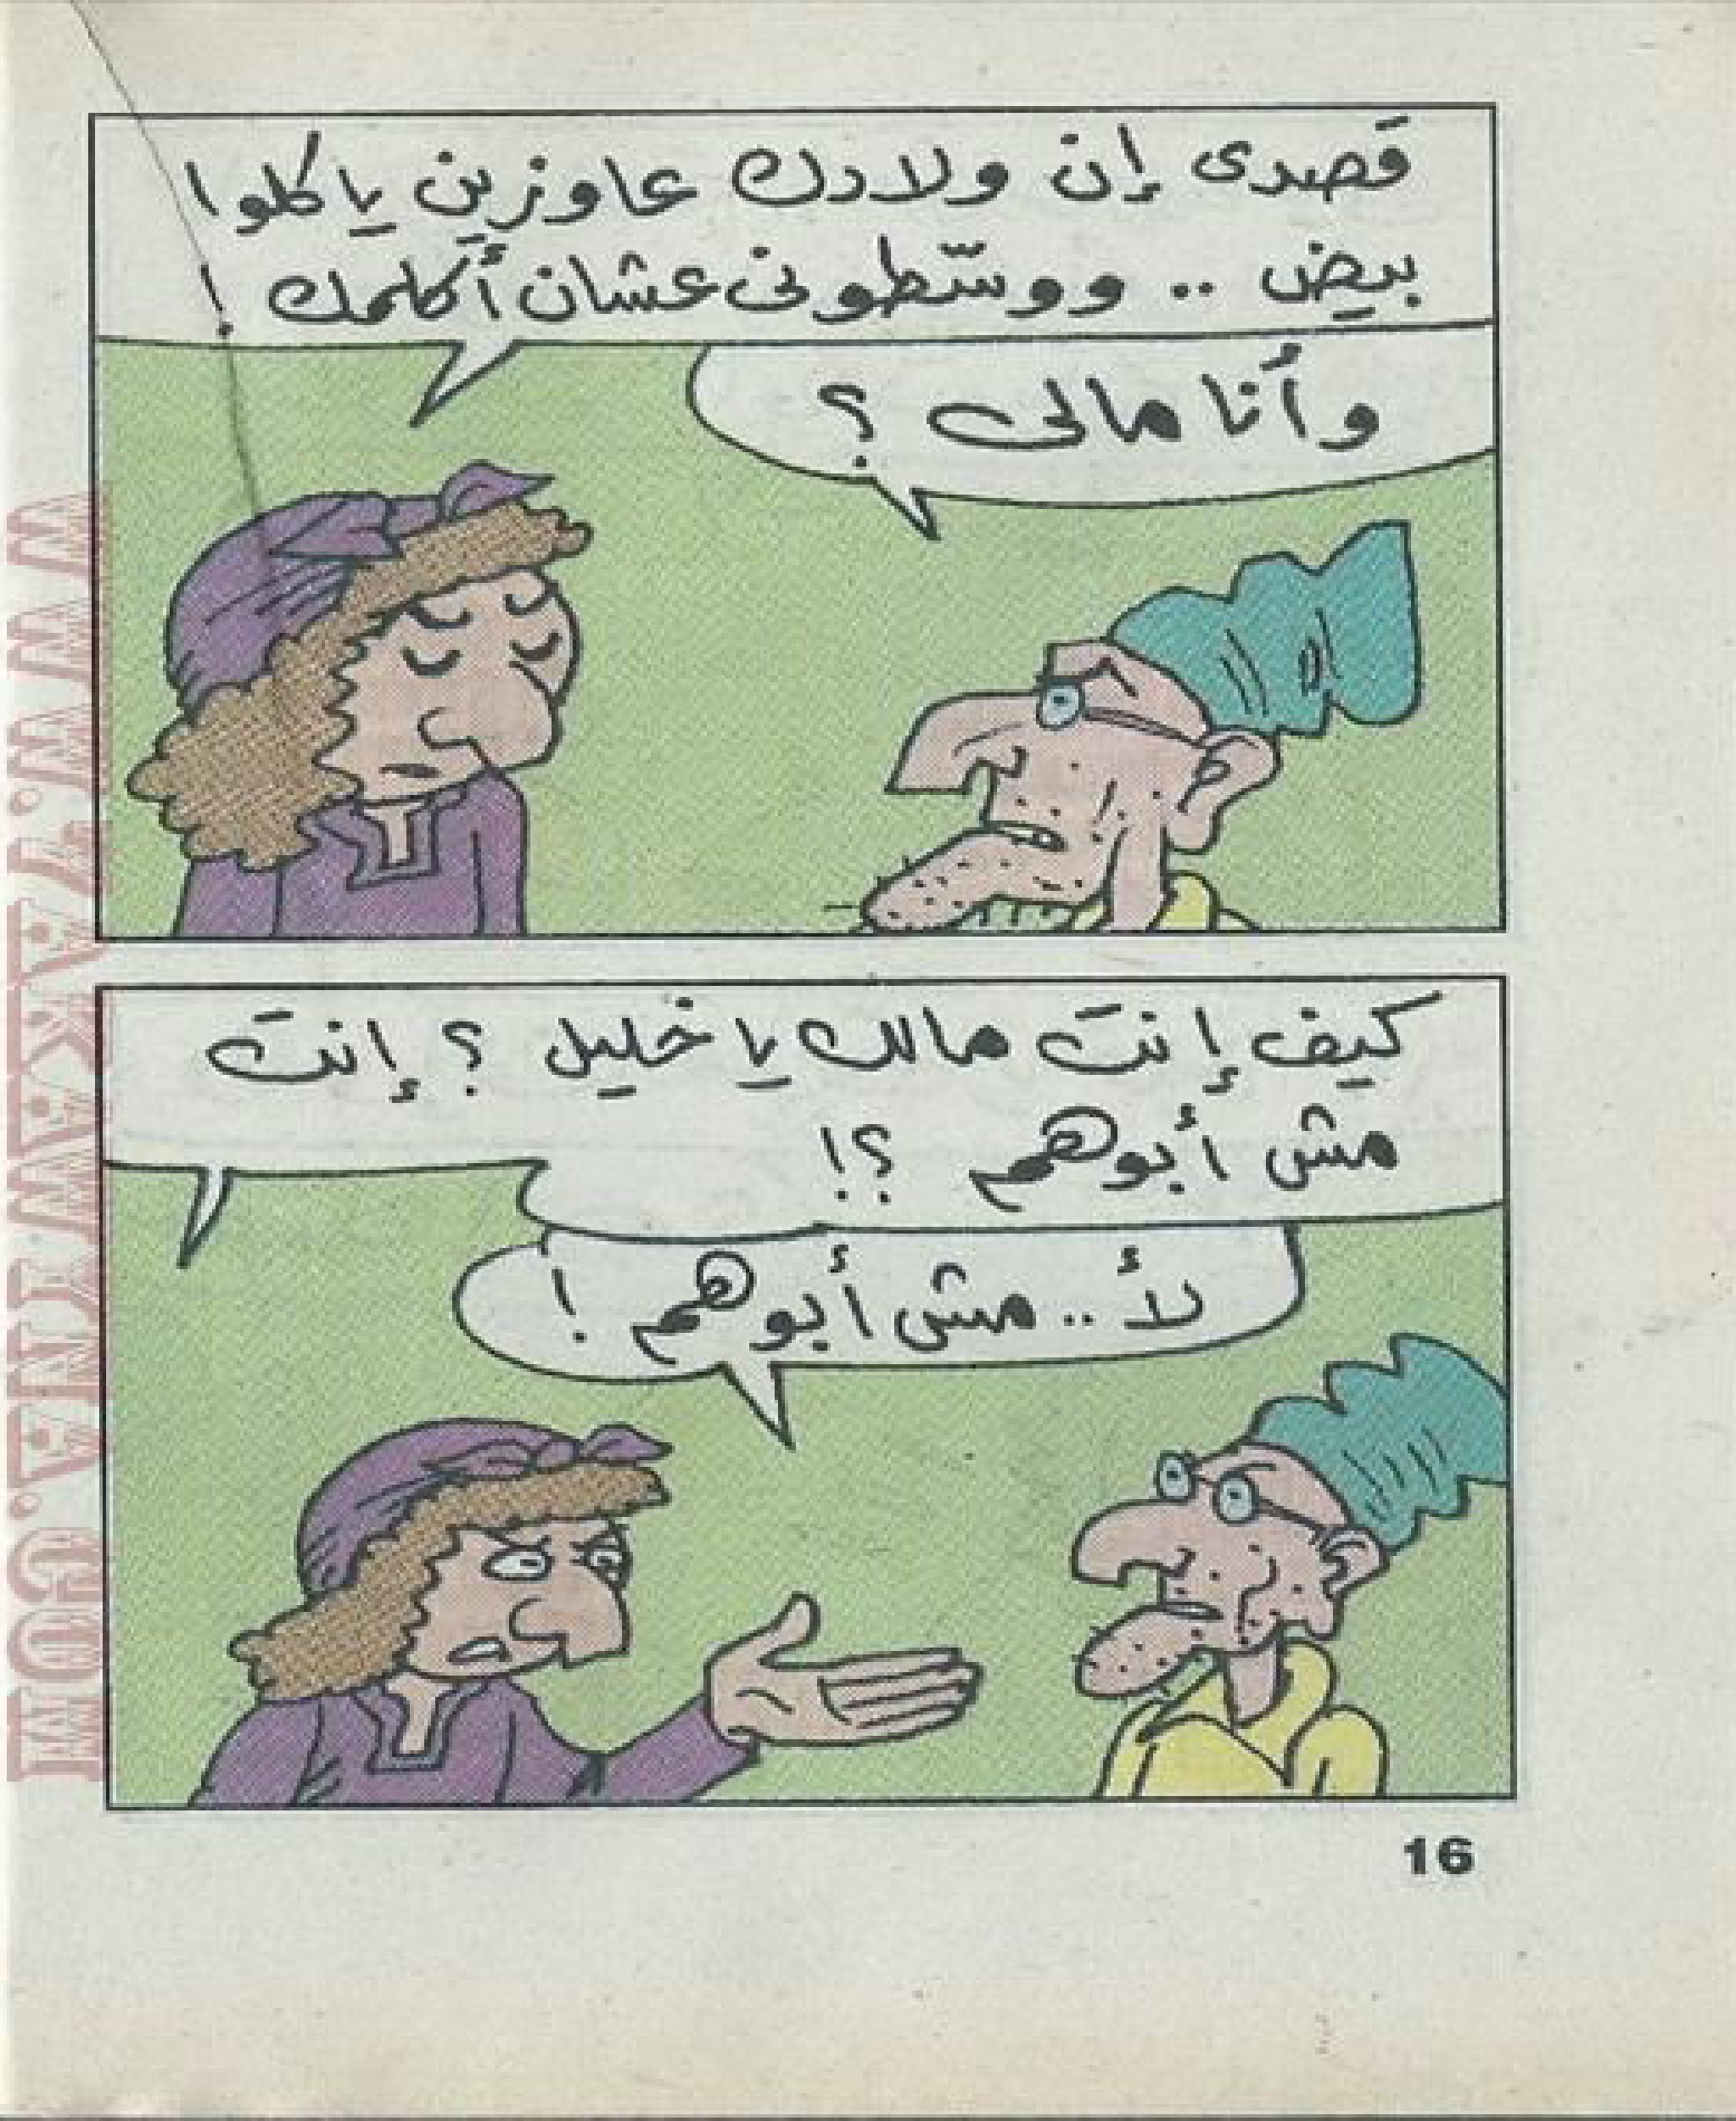 قصدى إن ولادك عاوزين ياكلوا
بيض .. ووسّطونى عشان أكلمك !
وأنا مالى ؟
كيف إنتَ مالك يا خليل ؟ إنتَ
مش أبوهم ؟!
لأ .. مش أبوهم !
16
WWW.TAKEWINE.COM